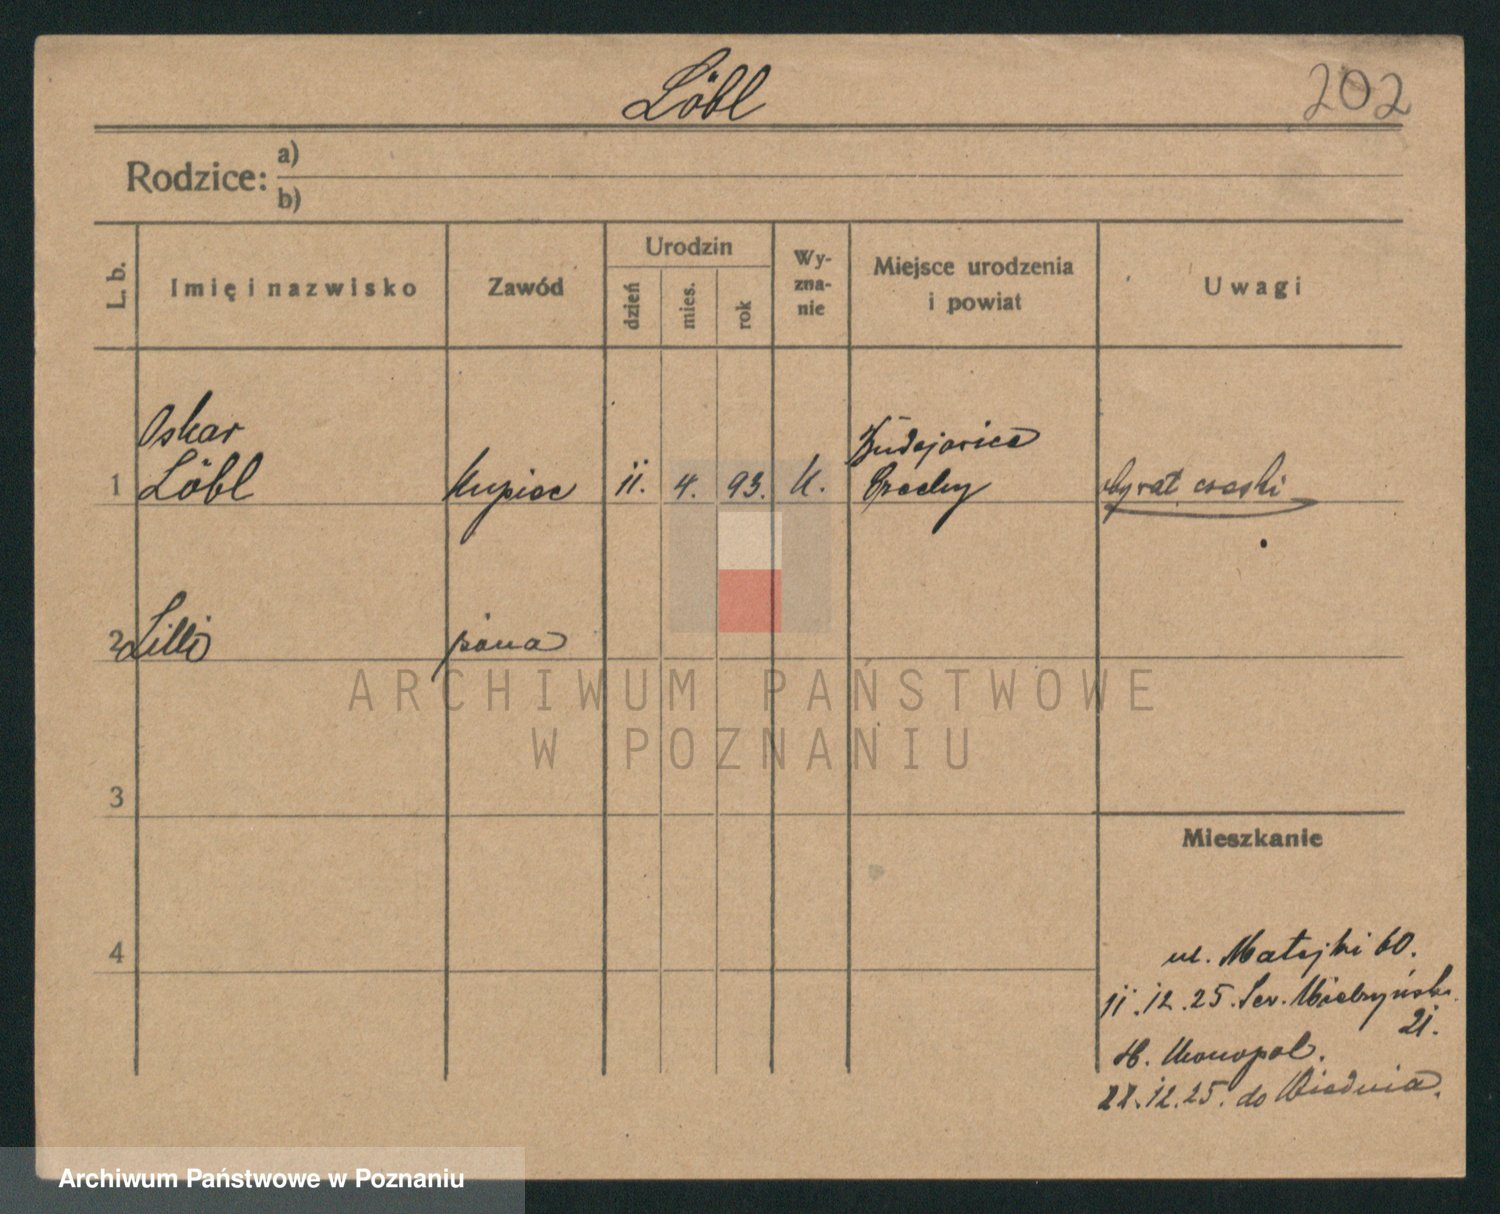 Löbl
202
Rodzice:
a)
b)
L. b.
Imię i nazwisko
Zawód
Urodzin
dzień
mies.
rok
Wy-
zna-
nie
Miejsce urodzenia
i powiat
Uwagi
1
Oskar
Löbl
kupiec
11.
4.
93.
K.
Budejovice
Czechy
obywat czeski
2
Lilli
żona
3
4
Mieszkanie
ul. Matejki 60.
11.12.25. Sew. Mielżyńsk.
21.
H. Monopol.
22.12.25. do Wiednia.
ARCHIWUM PAŃSTWOWE
W POZNANIU
Archiwum Państwowe w Poznaniu